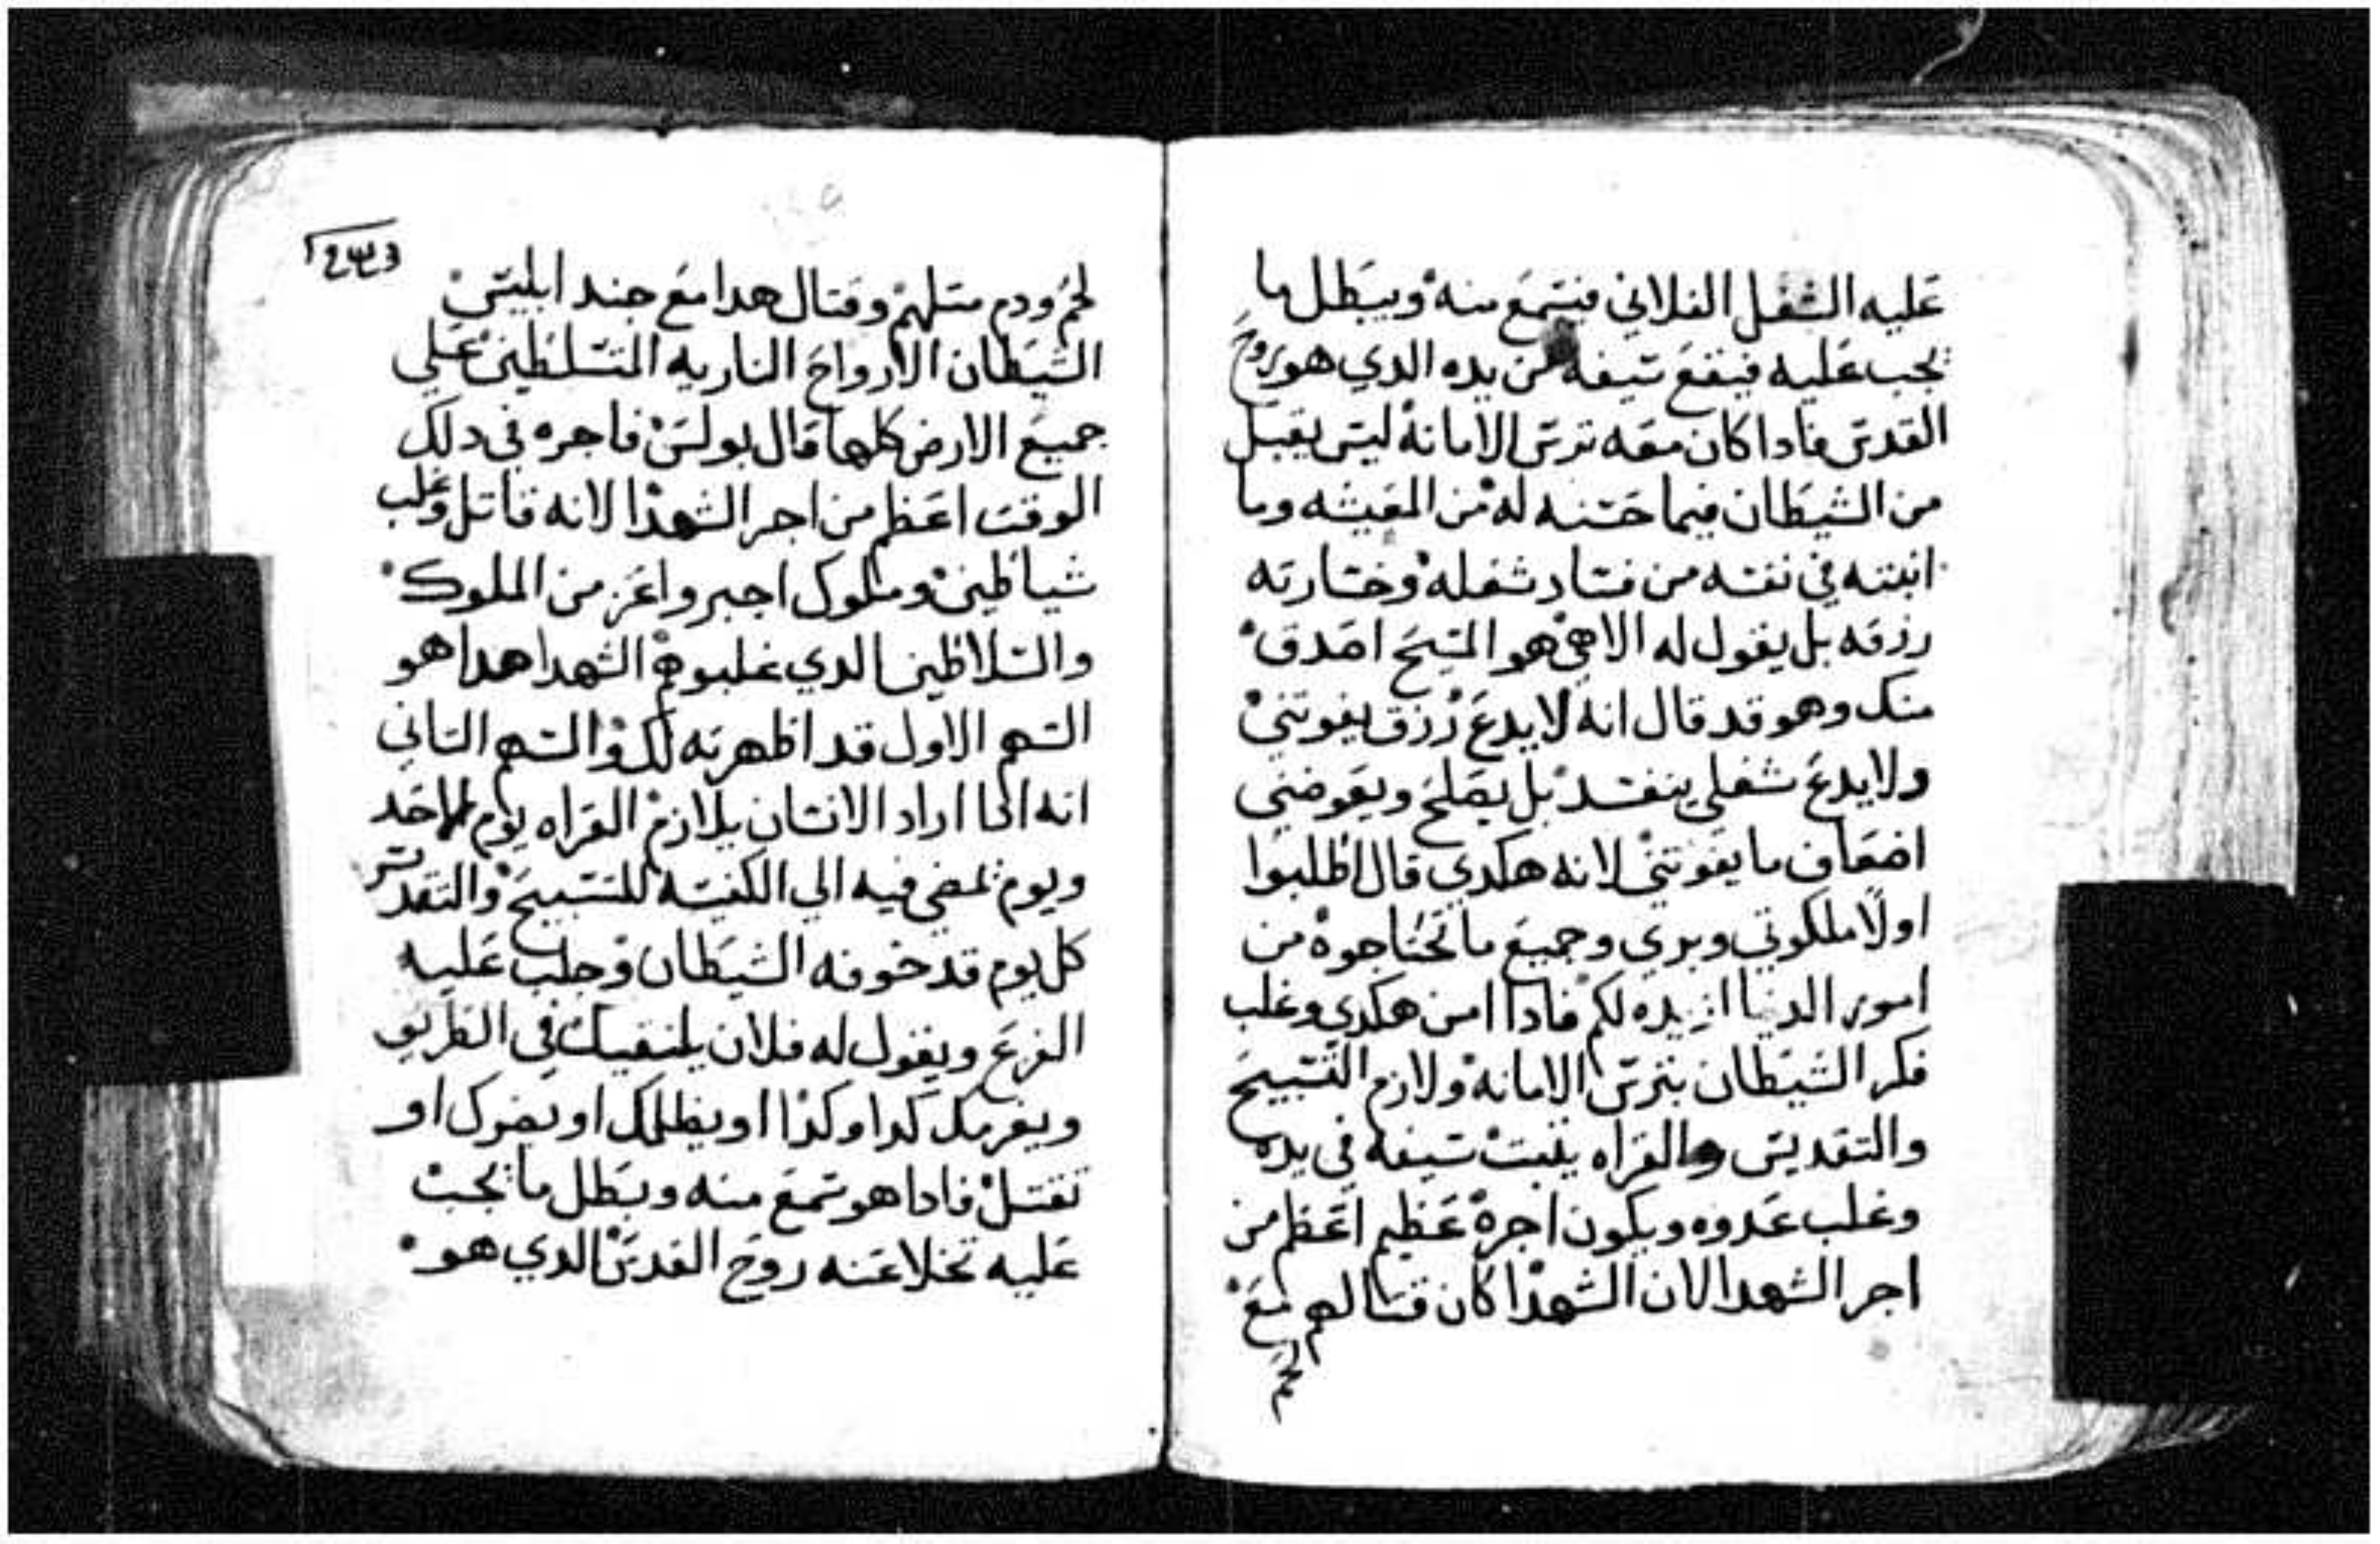 عليه الشغل الفلاني فيسمع منه ويبطل ما
يجب عليه فيقع سيفه من يده الدي هو روح
القدس فادا كان معه ترس الامانه ليس يقبل
من الشيطان فيما حسنه له من المعيشه وما
اتبته في نفسه من فساد شغله وخسارته
رزقه بل يقول له الاهي هو المسيح اصدق
منك وهو قد قال انه لا يدع رزق يفوتني
ولا يدع شغلي ينفسد بل يصلح ويعوضني
اضعاف ما يفوتني لانه هكدي قال اطلبوا
اولا ملكوتي وبري وجميع ما تحتاجوه من
امور الدنيا ازيده لكم فادا امن هكدي وغلب
فكر الشيطان بترس الامانه ولازم التسبيح
والتقديس والقراه يتبت سيفه في يده
وغلب عدوه ويكون اجره عظيم اعظم من
اجر الشهدا لان الشهدا كان قتالهم مع
لحم
لحم ودم متلهم وقتال هدا مع جند ابليس
الشيطان الارواح الناريه المتسلطين علي
جميع الارض كلها قال بولس فاجره في دلك
الوقت اعظم من اجر الشهدا لانه قاتل وغلب
شياطين وملوك اجبر واعز من الملوك
والسلاطين الدي غلبوهم الشهدا هدا هو
السهم الاول قد اظهرته لك والسهم التاني
انه ادا اراد الانسان يلازم القراه يوم الاحد
ويوم يمضي فيه الي الكنيسه للتسبيح والتقديس
كل يوم قد خوفه الشيطان وجلب عليه
الفزع ويقول له فلان يلتقيك في الطريق
ويغرمك كدا وكدا او يظلمك او يضرك او
تقتل فادا هو سمع منه وبطل ما يجب
عليه تخلا عنه روح القدس الدي هو